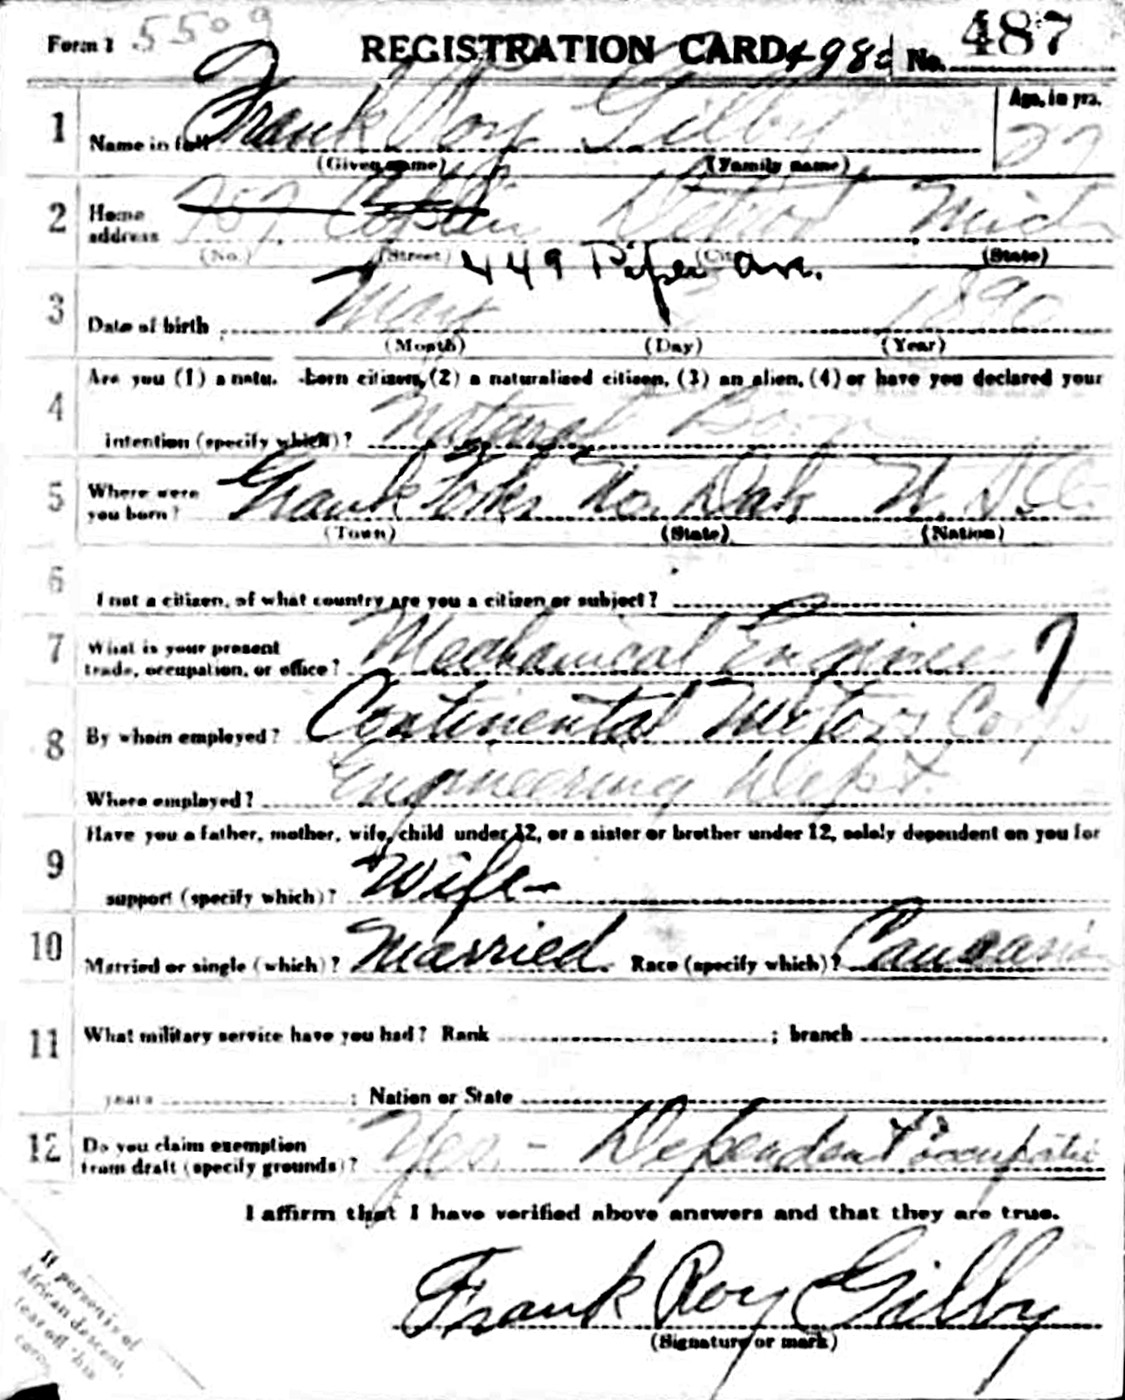 Form 1 5509 REGISTRATION CARD No. 487
1 Name in full Frank Roy Gilby Age, in yrs. 27
(Given name) (Family name)
2 Home address 707 Coplin Detroit Mich
(No.) (Street) (City) (State)
449 Piper Ave.
3 Date of birth May 1890
(Month) (Day) (Year)
Are you (1) a natu. -born citizen, (2) a naturalized citizen, (3) an alien, (4) or have you declared your
4 intention (specify which)? Natural Born
5 Where were you born? Grank Forks No. Dak U.S.
(Town) (State) (Nation)
6 I not a citizen, of what country are you a citizen or subject?
7 What is your present trade, occupation, or office? Mechanical Engineer 7
8 By whom employed? Continental Motors Corp
Where employed? Engineering Dept.
Have you a father, mother, wife, child under 12, or a sister or brother under 12, solely dependent on you for
9 support (specify which)? Wife-
10 Married or single (which)? Married. Race (specify which)? Caucasian
11 What military service have you had? Rank ; branch
years ; Nation or State
12 Do you claim exemption from draft (specify grounds)? Yes - Dependent
I affirm that I have verified above answers and that they are true.
Frank Roy Gilby
(Signature or mark)
If person is of
African descent,
tear off this
corner